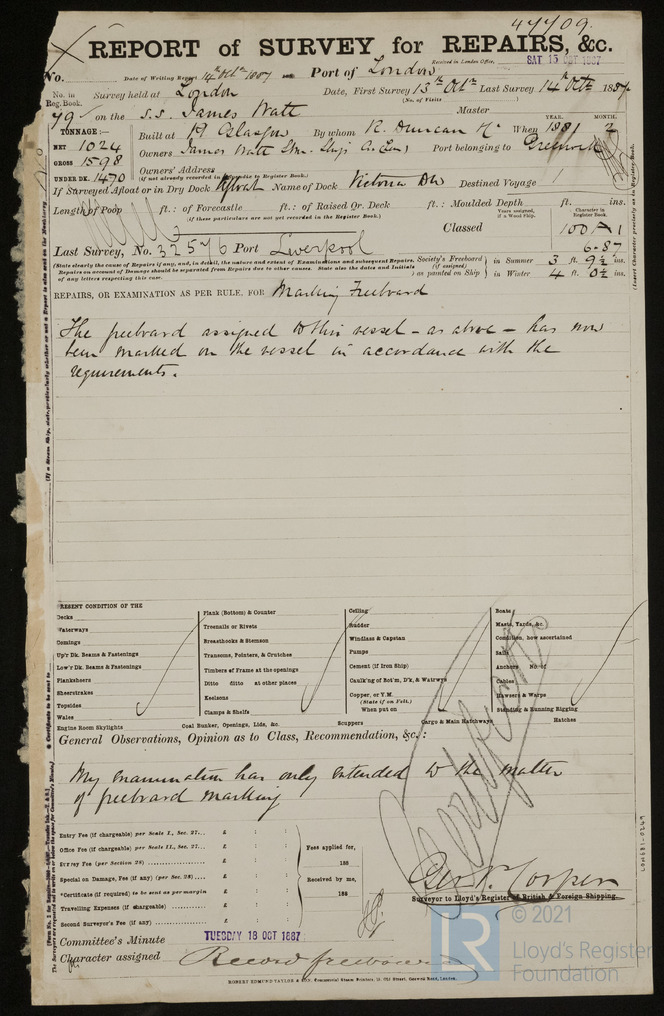 44709.
REPORT of SURVEY for REPAIRS, &c.
Received in London Office, SAT 15 OCT 1887
No. Date of Writing Report 14th Octr 1887 Port of London
No. in Reg. Book. Survey held at London Date, First Survey 13th Octr Last Survey 14th Octr 1887
(No. of Visits
79 on the S.S. James Watt Master
TONNAGE:— Built at Pt Glasgow By whom R. Duncan & Co When YEAR. 1881 MONTH. 2
NET 1024
GROSS 1598
UNDER DK. 1470
Owners James Watt Stm. Ship Co. (Lim) Port belonging to Greenock
Owners' Address
(if not already recorded in Appendix to Register Book.)
If Surveyed Afloat or in Dry Dock Afloat Name of Dock Victoria Dk Destined Voyage
Length of Poop ft.: of Forecastle ft.: of Raised Qr. Deck ft.: Moulded Depth ft. ins.
(if these particulars are not yet recorded in the Register Book.)
Years assigned, if a Wood Ship. Character in Register Book.
Classed 100 A 1
6-87
Last Survey, No. 32576 Port Liverpool
(State clearly the cause of Repairs if any, and, in detail, the nature and extent of Examinations and subsequent Repairs. Repairs on account of Damage should be separated from Repairs due to other causes. State also the dates and Initials of any letters respecting this case.
Society's Freeboard (if assigned) as painted on Ship
in Summer 3 ft. 9½ ins.
in Winter 4 ft. 0½ ins.
REPAIRS, OR EXAMINATION AS PER RULE, FOR Marking Freeboard
The freeboard assigned to this vessel - as above - has now
been marked on the vessel in accordance with the
requirements.
PRESENT CONDITION OF THE
Decks
Waterways
Comings
Up'r Dk. Beams & Fastenings
Low'r Dk. Beams & Fastenings
Planksheers
Sheerstrakes
Topsides
Wales
Engine Room Skylights
Plank (Bottom) & Counter
Treenails or Rivets
Breasthooks & Stemson
Transoms, Pointers, & Crutches
Timbers of Frame at the openings
Ditto ditto at other places
Keelsons
Clamps & Shelfs
Coal Bunker, Openings, Lids, &c.
Ceiling
Rudder
Windlass & Capstan
Pumps
Cement (if Iron Ship)
Caulk'ng of Bot'm, D'k, & Watrwys
Copper, or Y.M.
(State if on Felt.)
When put on
Scuppers
Boats
Masts, Yards, &c.
Condition, how ascertained
Sails
Anchors No. of
Cables
Hawsers & Warps
Standing & Running Rigging
Cargo & Main Hatchways Hatches
General Observations, Opinion as to Class, Recommendation, &c.:
My examination has only extended to the matter
of freeboard marking
Entry Fee (if chargeable) per Scale I., Sec. 27... £ : :
Office Fee (if chargeable) per Scale II., Sec. 27... £ : :
Survey Fee (per Section 28) £ : :
Special on Damage, Fee (if any) (per Sec. 28) £ : :
*Certificate (if required) to be sent as per margin
Travelling Expenses (if chargeable) £ : :
Second Surveyor's Fee (if any) £ : :
Fees applied for,
188
Received by me,
188
Surveyor to Lloyd's Register of British & Foreign Shipping.
Committee's Minute TUESDAY 18 OCT 1887
Character assigned Record freeboard
ROBERT EDMUND TAYLOR & SON, Commercial Steam Printers, 19, Old Street, Goswell Road, London.
LON681-0269
© 2021
LR
Lloyd's Register
Foundation